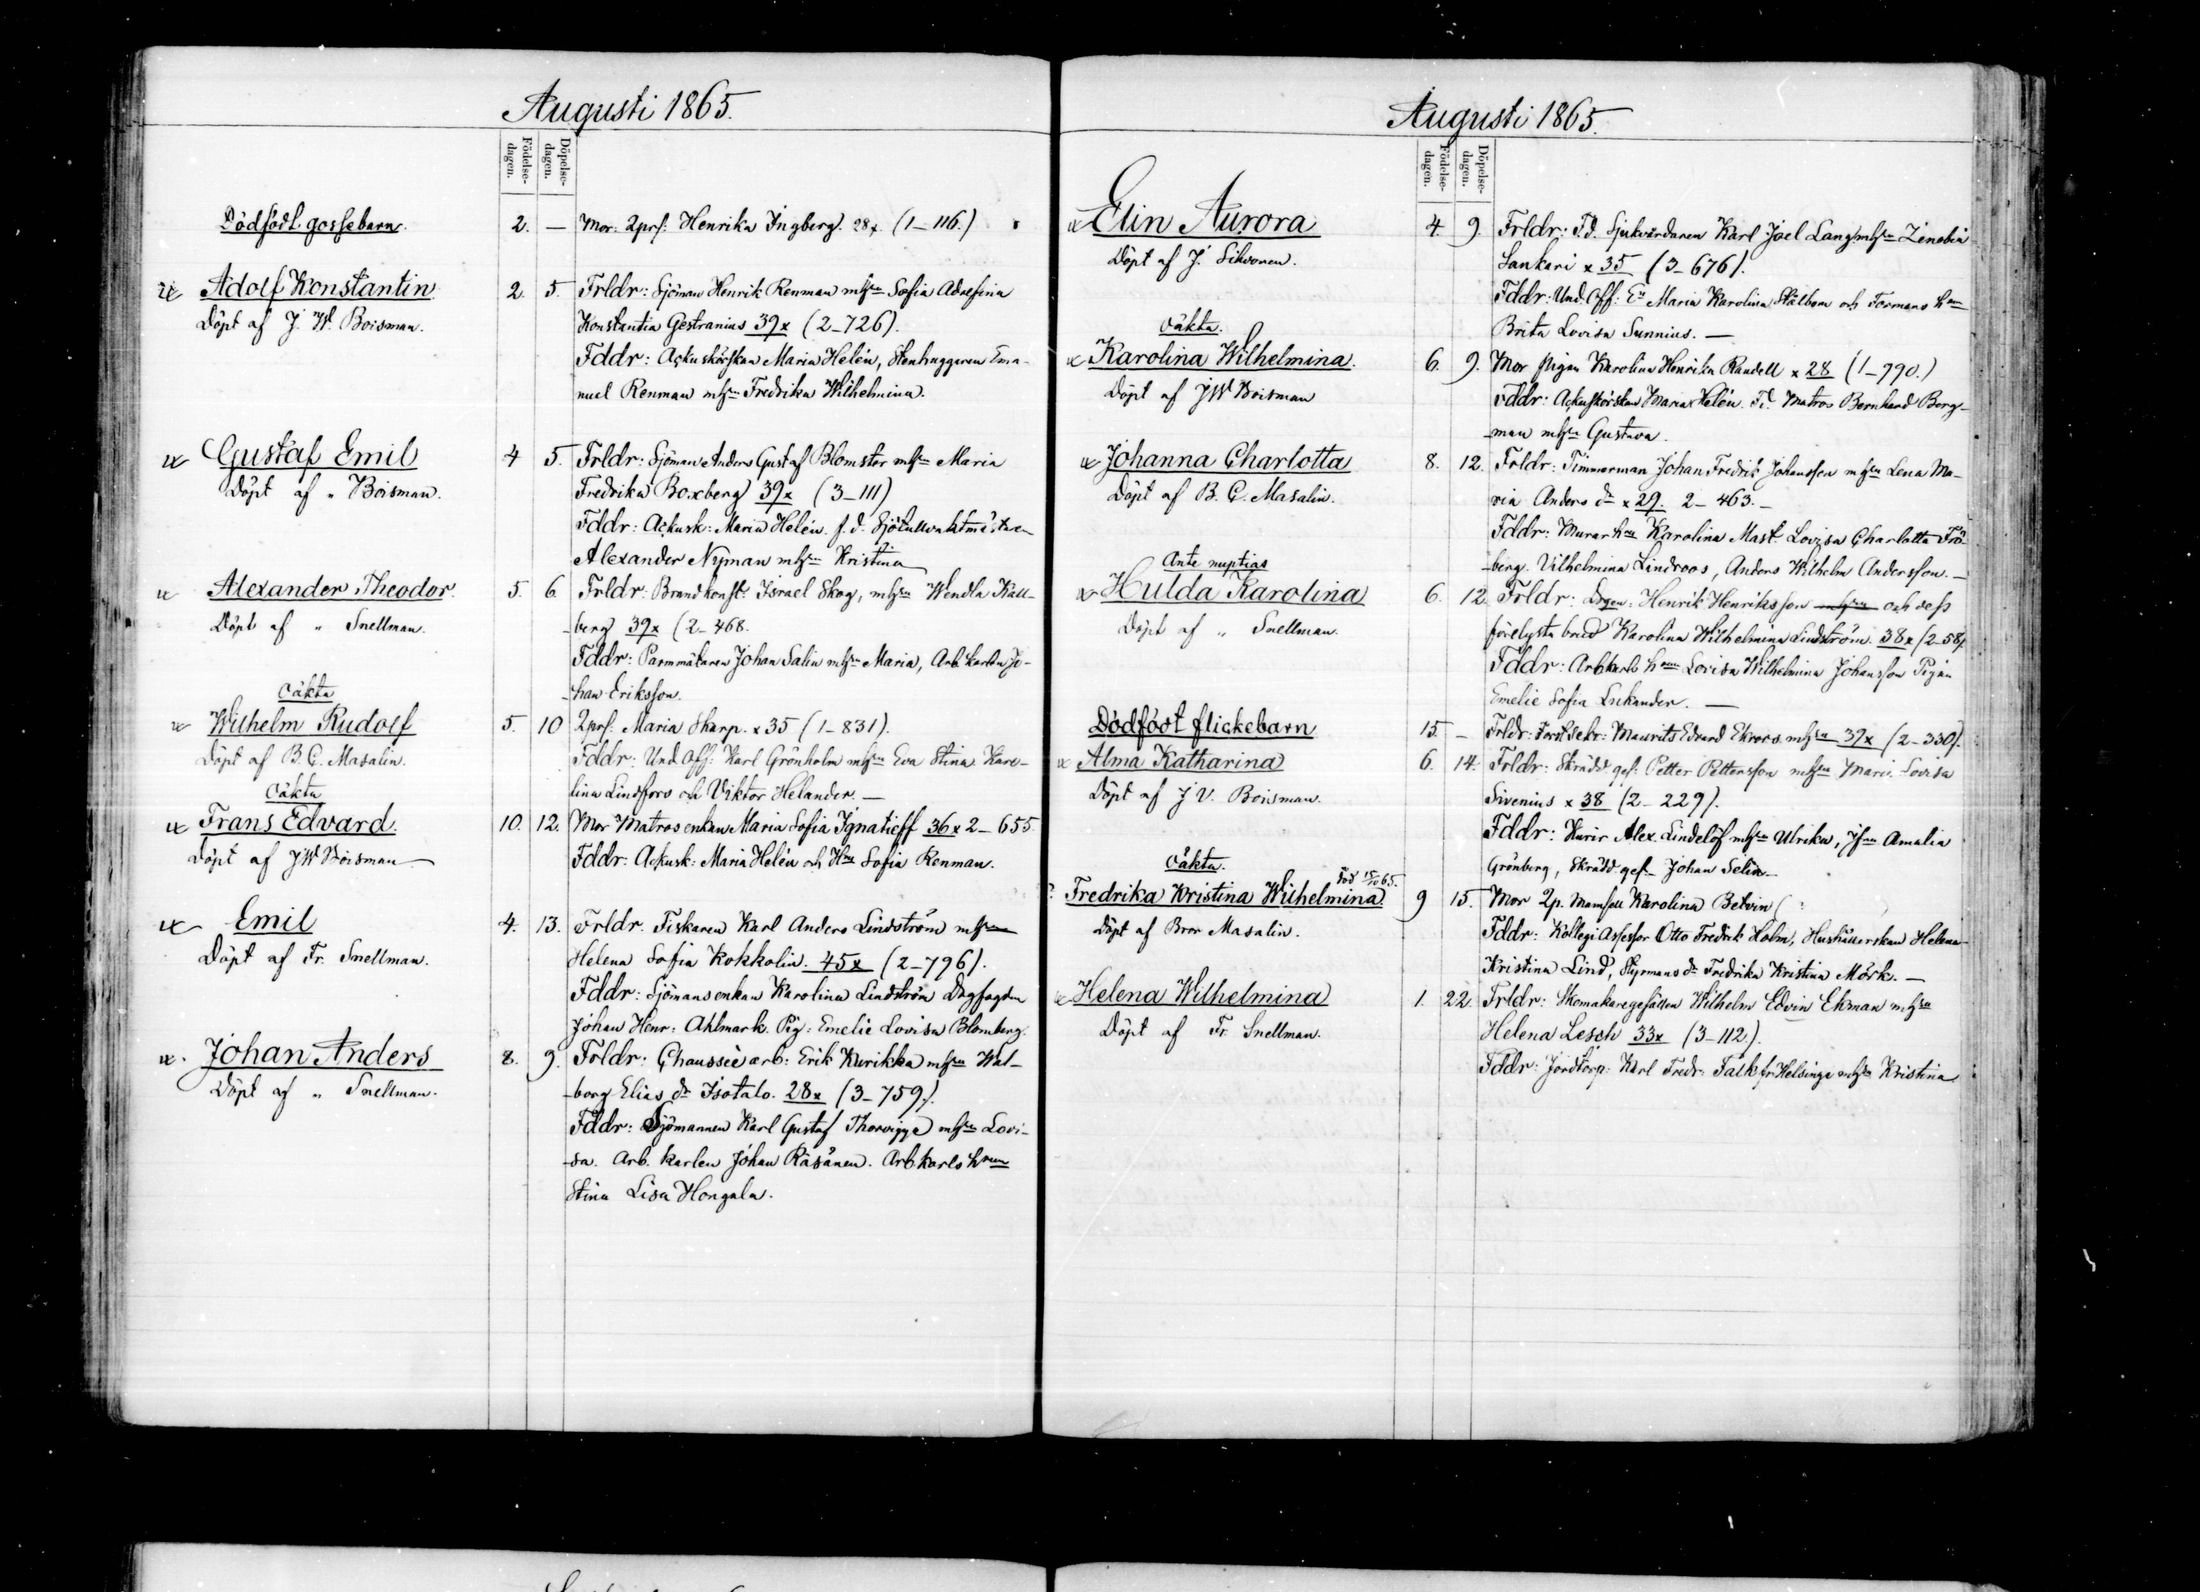 Augusti 1865.
Födelse-dagen.
Döpelse-dagen.
Dödfödt gossebarn.
2. — Mor: 2prs: Henrika Ingberg. 28x. (1–116.)
Adolf Konstantin
Döpt af J. W. Boisman.
2. 5. Frldr: Sjöman Henrik Renman mhsn Sofia Adolfina
Konstantia Gestranius 39x (2–726).
Fddr: Ackuskörskan Maria Helén, Stenhuggaren Ema-
nuel Renman mhsn Fredrika Wilhelmina.
Gustaf Emil
Döpt af „ Boisman.
4 5. Frldr: Sjöman Anders Gustaf Blomster mhsn Maria
Fredrika Boxberg 39x (3–111)
Fddr: Ackusk: Maria Helén. f.d. Sjötullvaktmästaren
Alexander Nyman mhsn Kristina
Alexander Theodor.
Döpt af „ Snellman.
5. 6. Frldr: Brandkonst: Israel Skog, mhsn Wendla Kall-
-berg 39x (2–468.
Fddr: Parmmätaren Johan Salin mhsn Maria, Arb. karlen Jo-
-han Eriksson.
Oäkta
Wilhelm Rudolf
Döpt af B. C. Masalin.
5. 10 2prs: Maria Skarp. x35 (1–831).
Fddr: Und. Off: Karl Grönholm mhsn Eva Stina Karo-
lina Lindfors och Viktor Helander. —
Oäkta
Frans Edvard.
Döpt af J W Boisman —
10. 12. Mor Matrosenkan Maria Sofia Ignatieff 36x 2–655
Fddr: Ackusk: Maria Helén och Hu Sofia Renman.
Emil
Döpt af Fr. Snellman.
4. 13. Frldr. Fiskaren Karl Anders Lindström mhsn
Helena Sofia Kokkolin. 45x (2–796).
Fddr: Sjömansenkan Karolina Lindström Dagfogden
Johan Henr: Ahlmark. Pig: Emelie Lovisa Blomberg.
Johan Anders
Döpt af „ Snellman.
8. 9. Frldr: Chaussée arb: Erik Kurikka mhsn Wal-
-borg Elias dr Isotalo. 28x (3–759).
Fddr: Sjömannen Karl Gustaf Thorvigge mhsn Lovi-
-sa. Arb. karlen Johan Räsänen. Arbkarls hrun
Stina Lisa Hongala.
Augusti 1865.
Födelse-dagen.
Döpelse-dagen.
Elin Aurora
Döpt af J. Sihvonen.
4. 9. Frldr: F.d. Sjukvårdaren Karl Joel Lang mhsn Zenobia
Sankari x 35 (3–676).
Fddr: Und. Off: En Maria Karolina Stålbom och Formans hrun
Brita Lovisa Sunnius. —
Oäkta.
Karolina Wilhelmina.
Döpt af J W Boisman
6. 9. Mor Pigan Karolina Henrika Randell x 28 (1–790.)
Fddr: Ackuskörskan Maria Helén. F.d. Matros Bernhard Berg-
-man mhsn Gustava.
Johanna Charlotta
Döpt af B. C. Masalin.
8. 12. Frldr: Timmerman Johan Fredrik Johansson mhsn Lena Ma-
ria Anders dr x 29. 2–463.–
Fddr: Murar hu Karolina Mast. Lovisa Charlotta Frö-
-berg. Vilhelmina Lindroos, Anders Wilhelm Andersson. —
Ante nuptias
Hulda Karolina
Döpt af „ Snellman.
6. 12. Frldr: Drgen: Henrik Henriksson mhsn och dess
förelysta brud Karolina Wilhelmina Lindström. 38x (2–58).
Fddr: Arbkarls hrun Lovisa Wilhelmina Johansson Pigan
Emelie Sofia Lukander. —
Dödfödt flickebarn
15. – Frldr: Forst Sekr: Maurits Edvard Ekroos mhsn 39x (2–330).
Alma Katharina
Döpt af J V. Boisman.
6. 14. Frldr: Skrädd. ges: Petter Pettersson mhsn Mari. Lovisa
Sivenius x 38 (2–229).
Fddr: Kurir Alex. Lindelöf mhsn Ulrika, Jfrn Amalia
Grönberg, Skrädd ges– Johan Selin.–
Oäkta.
död 15/10 65.
Fredrika Kristina Wilhelmina
Döpt af Bror Masalin.
9 15. Mor 2p. Mamsell Karolina Betvin (
Fddr: Kollegi Assessor Otto Fredrik Holm, Hushållerskan Helena
Kristina Lind, Styrmans dr Fredrika Kristina Mörk. —
Helena Wilhelmina
Döpt af Fr. Snellman.
1. 22. Frldr: Skomakaregesällen Wilhelm Edvin Ekman mhsn
Helena Lesch 33x (3–112).
Fddr: Jordtorp: Karl Fredr: Falk fr Helsinge mhsn Kristina